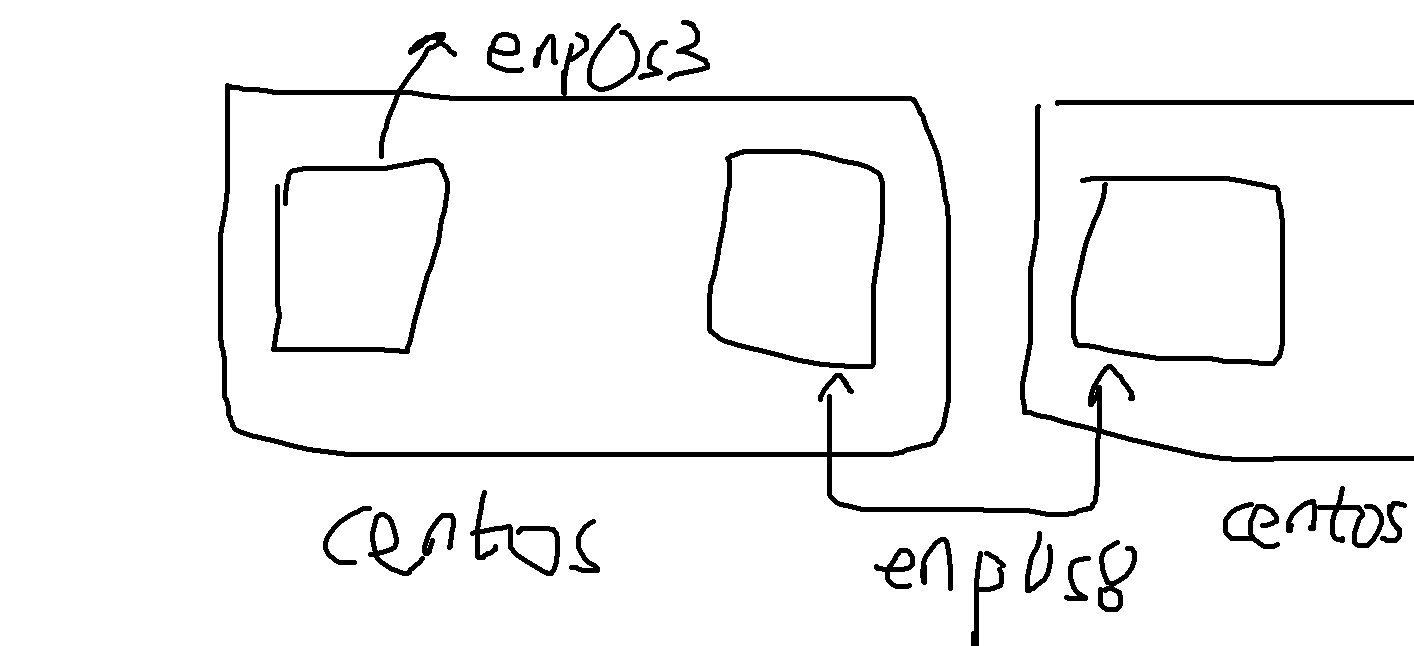 enp0s3
centos
enp0s8
centos